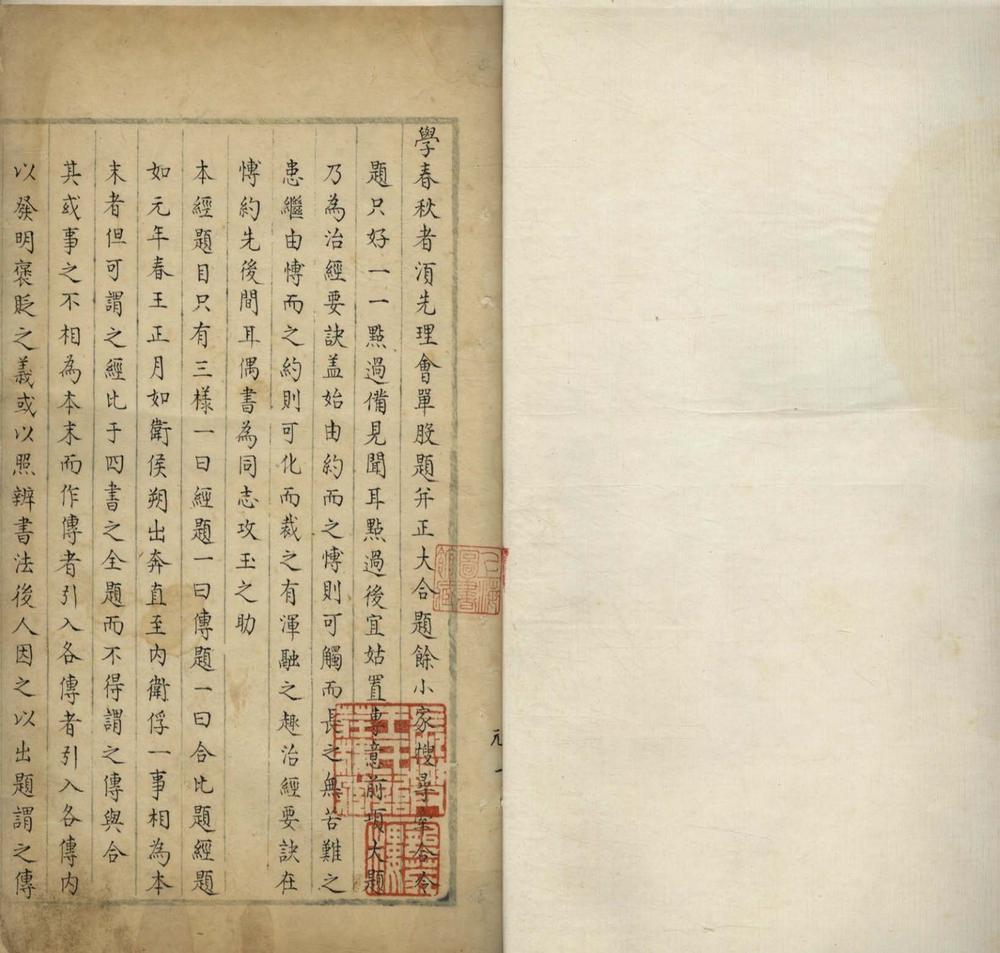 學春秋者須先理會單股題并正大合題餘小家搜尋牽合合
題只好一一點過備見聞耳點過後宜姑置專意前項大題
乃為治經要訣盖始由約而之愽則可觸而長之無苦難之
患繼由愽而之約則可化而裁之有渾融之趣治經要訣在
愽約先後間耳偶書為同志攻玉之助
本經題目只有三樣一曰經題一曰傳題一曰合比題經題
如元年春王正月如衛侯朔出奔直至內衛俘一事相為本
末者但可謂之經比于四書之全題而不得謂之傳與合
其或事之不相為本末而作傳者引入各傳者引入各傳内
以發明褒貶之義或以照辨書法後人因之以出題謂之傳